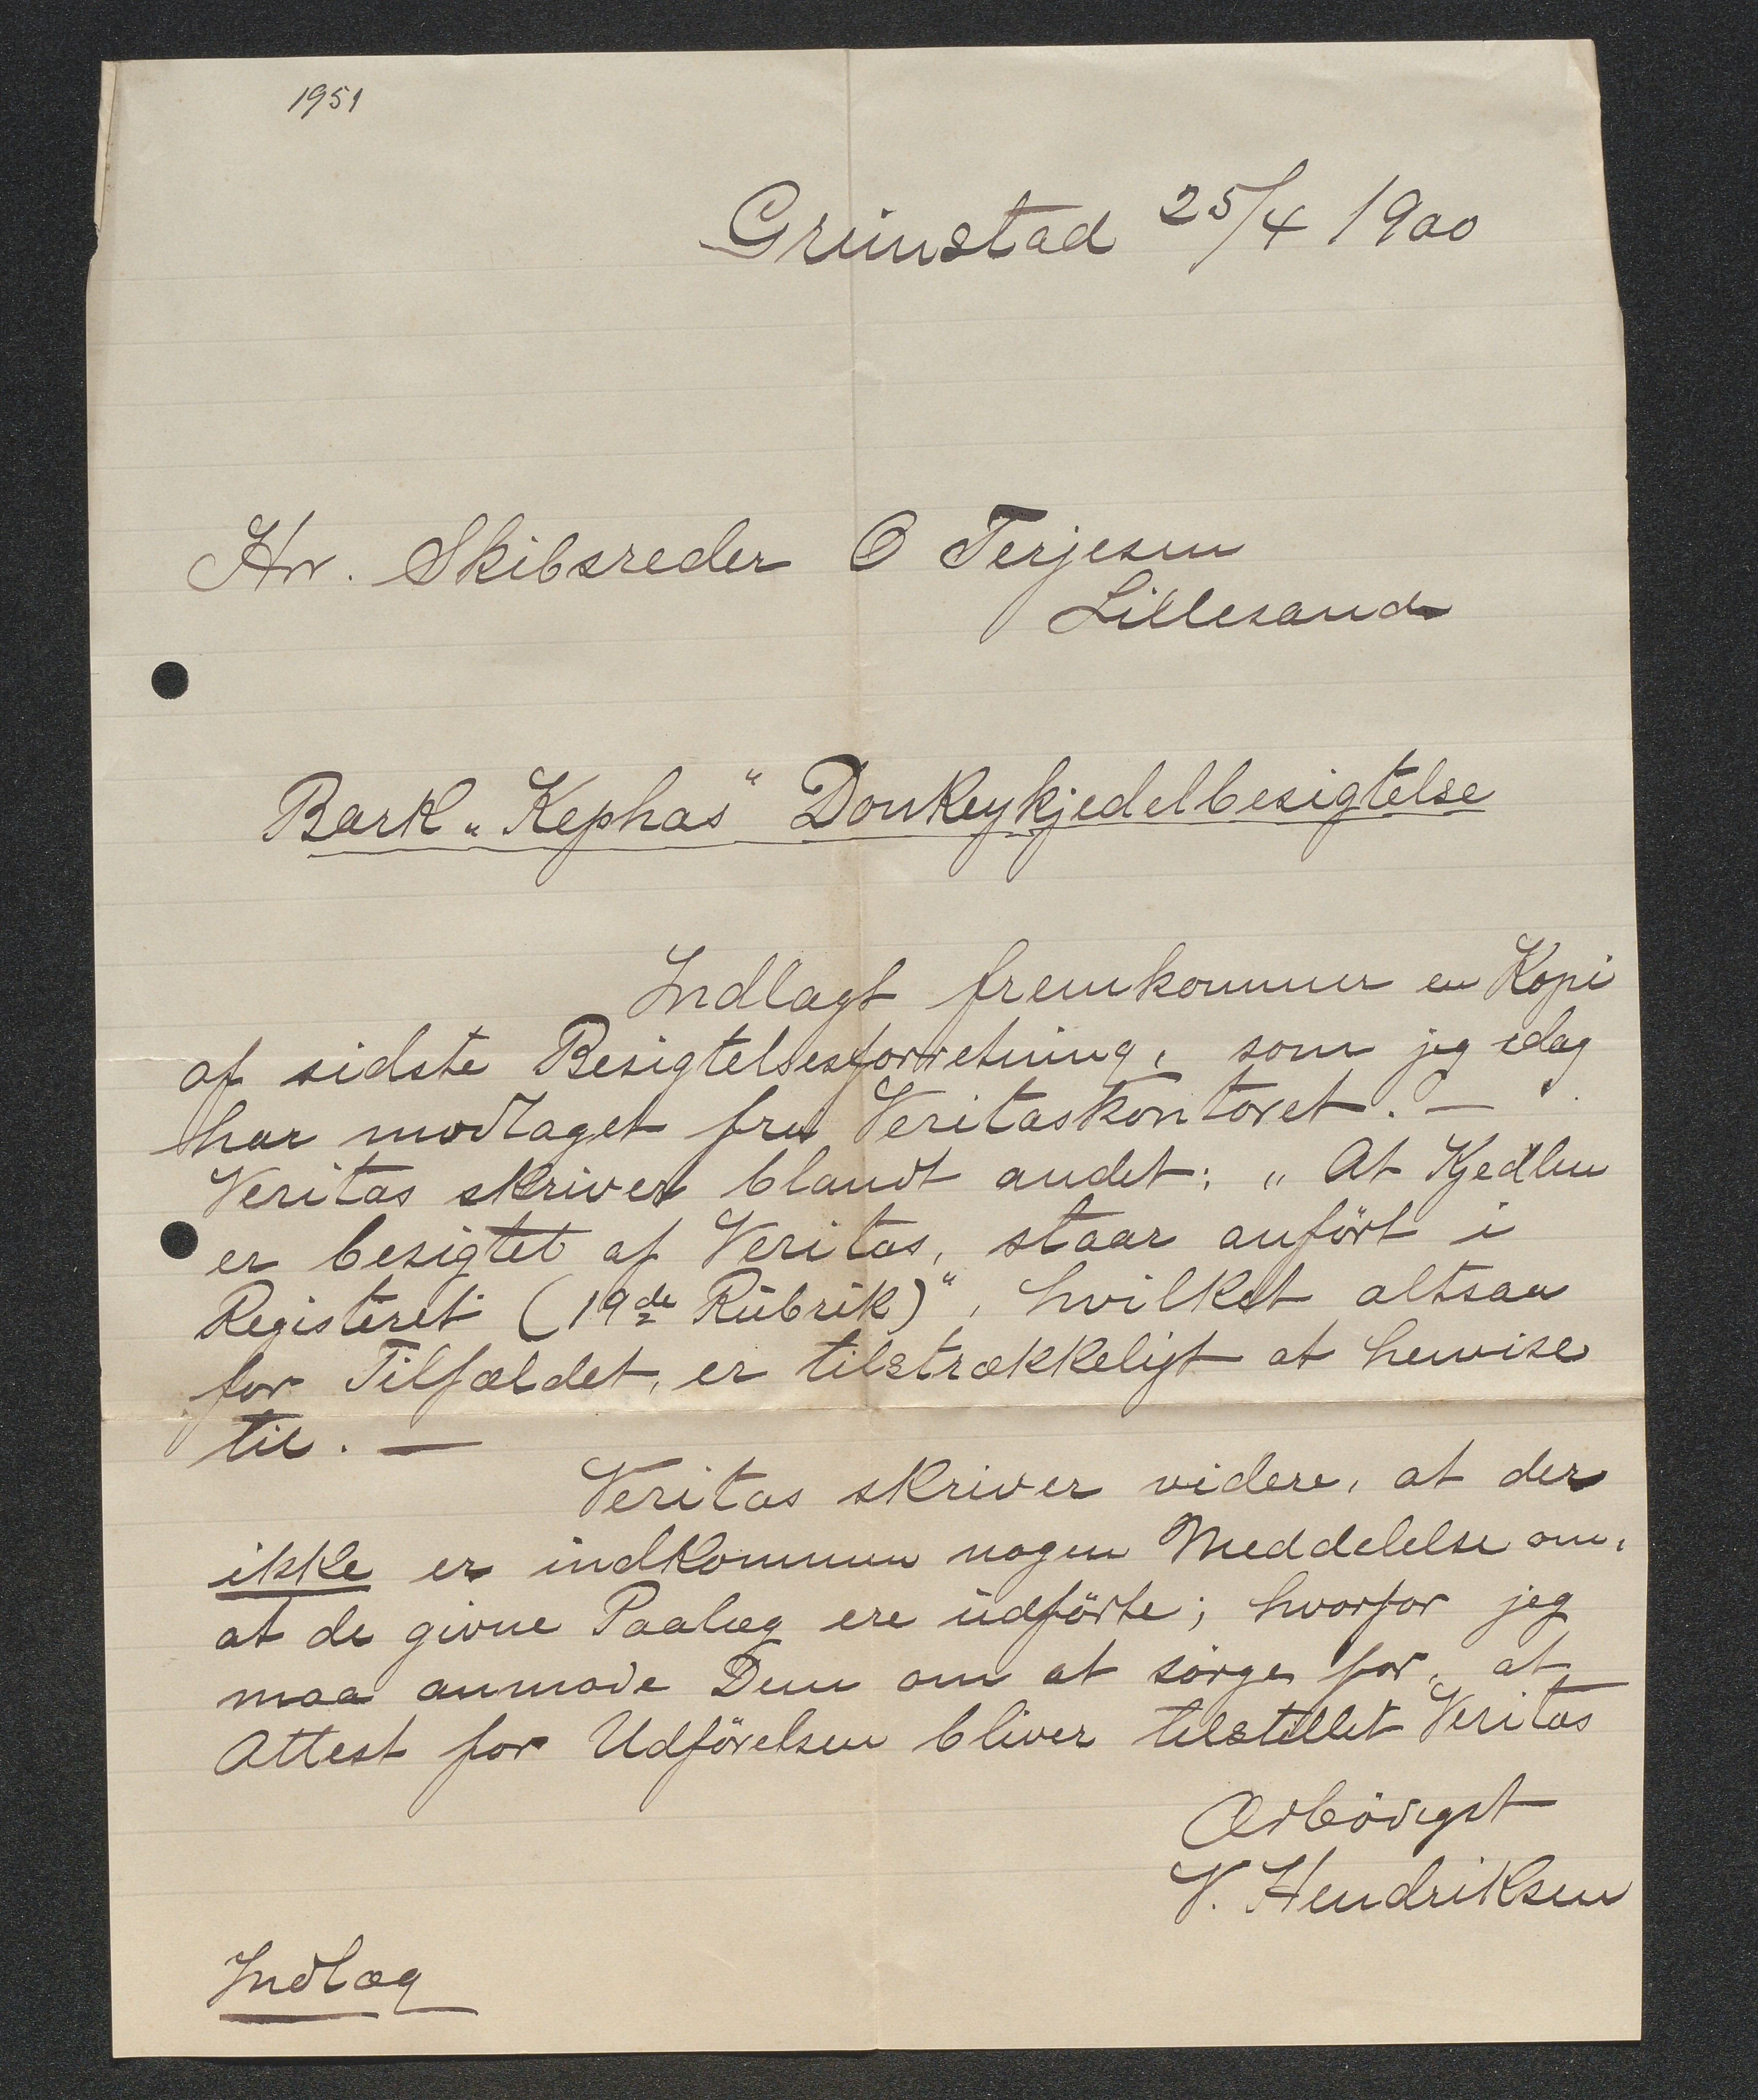 1951
Grimstad 25/4 1900
Hr. Skibsreder O Terjesen
Lillesand
Bark „Kephas“ Donkeykjedelbesigtelse
Indlagt fremkommer en Kopi
af sidste Besigtelsesforretning, som jeg idag
har modtaget fra Veritaskontoret. —
Veritas skriver blandt andet: „At Kjedlen
er besigtet af Veritas, staar anført i
Registeret (19de Rubrik)“, hvilket altsaa
for Tilfældet, er tilstrækkeligt at henvise
til. —
Veritas skriver videre, at der
ikke er indkommen nogen Meddelelse om,
at de givne Paalæg ere udførte; hvorfor jeg
maa anmode Dem om at sørge for, at
Attest for Udførelsen bliver tilstillet Veritas
Ærbödigst
V. Hendriksen
Indlæg